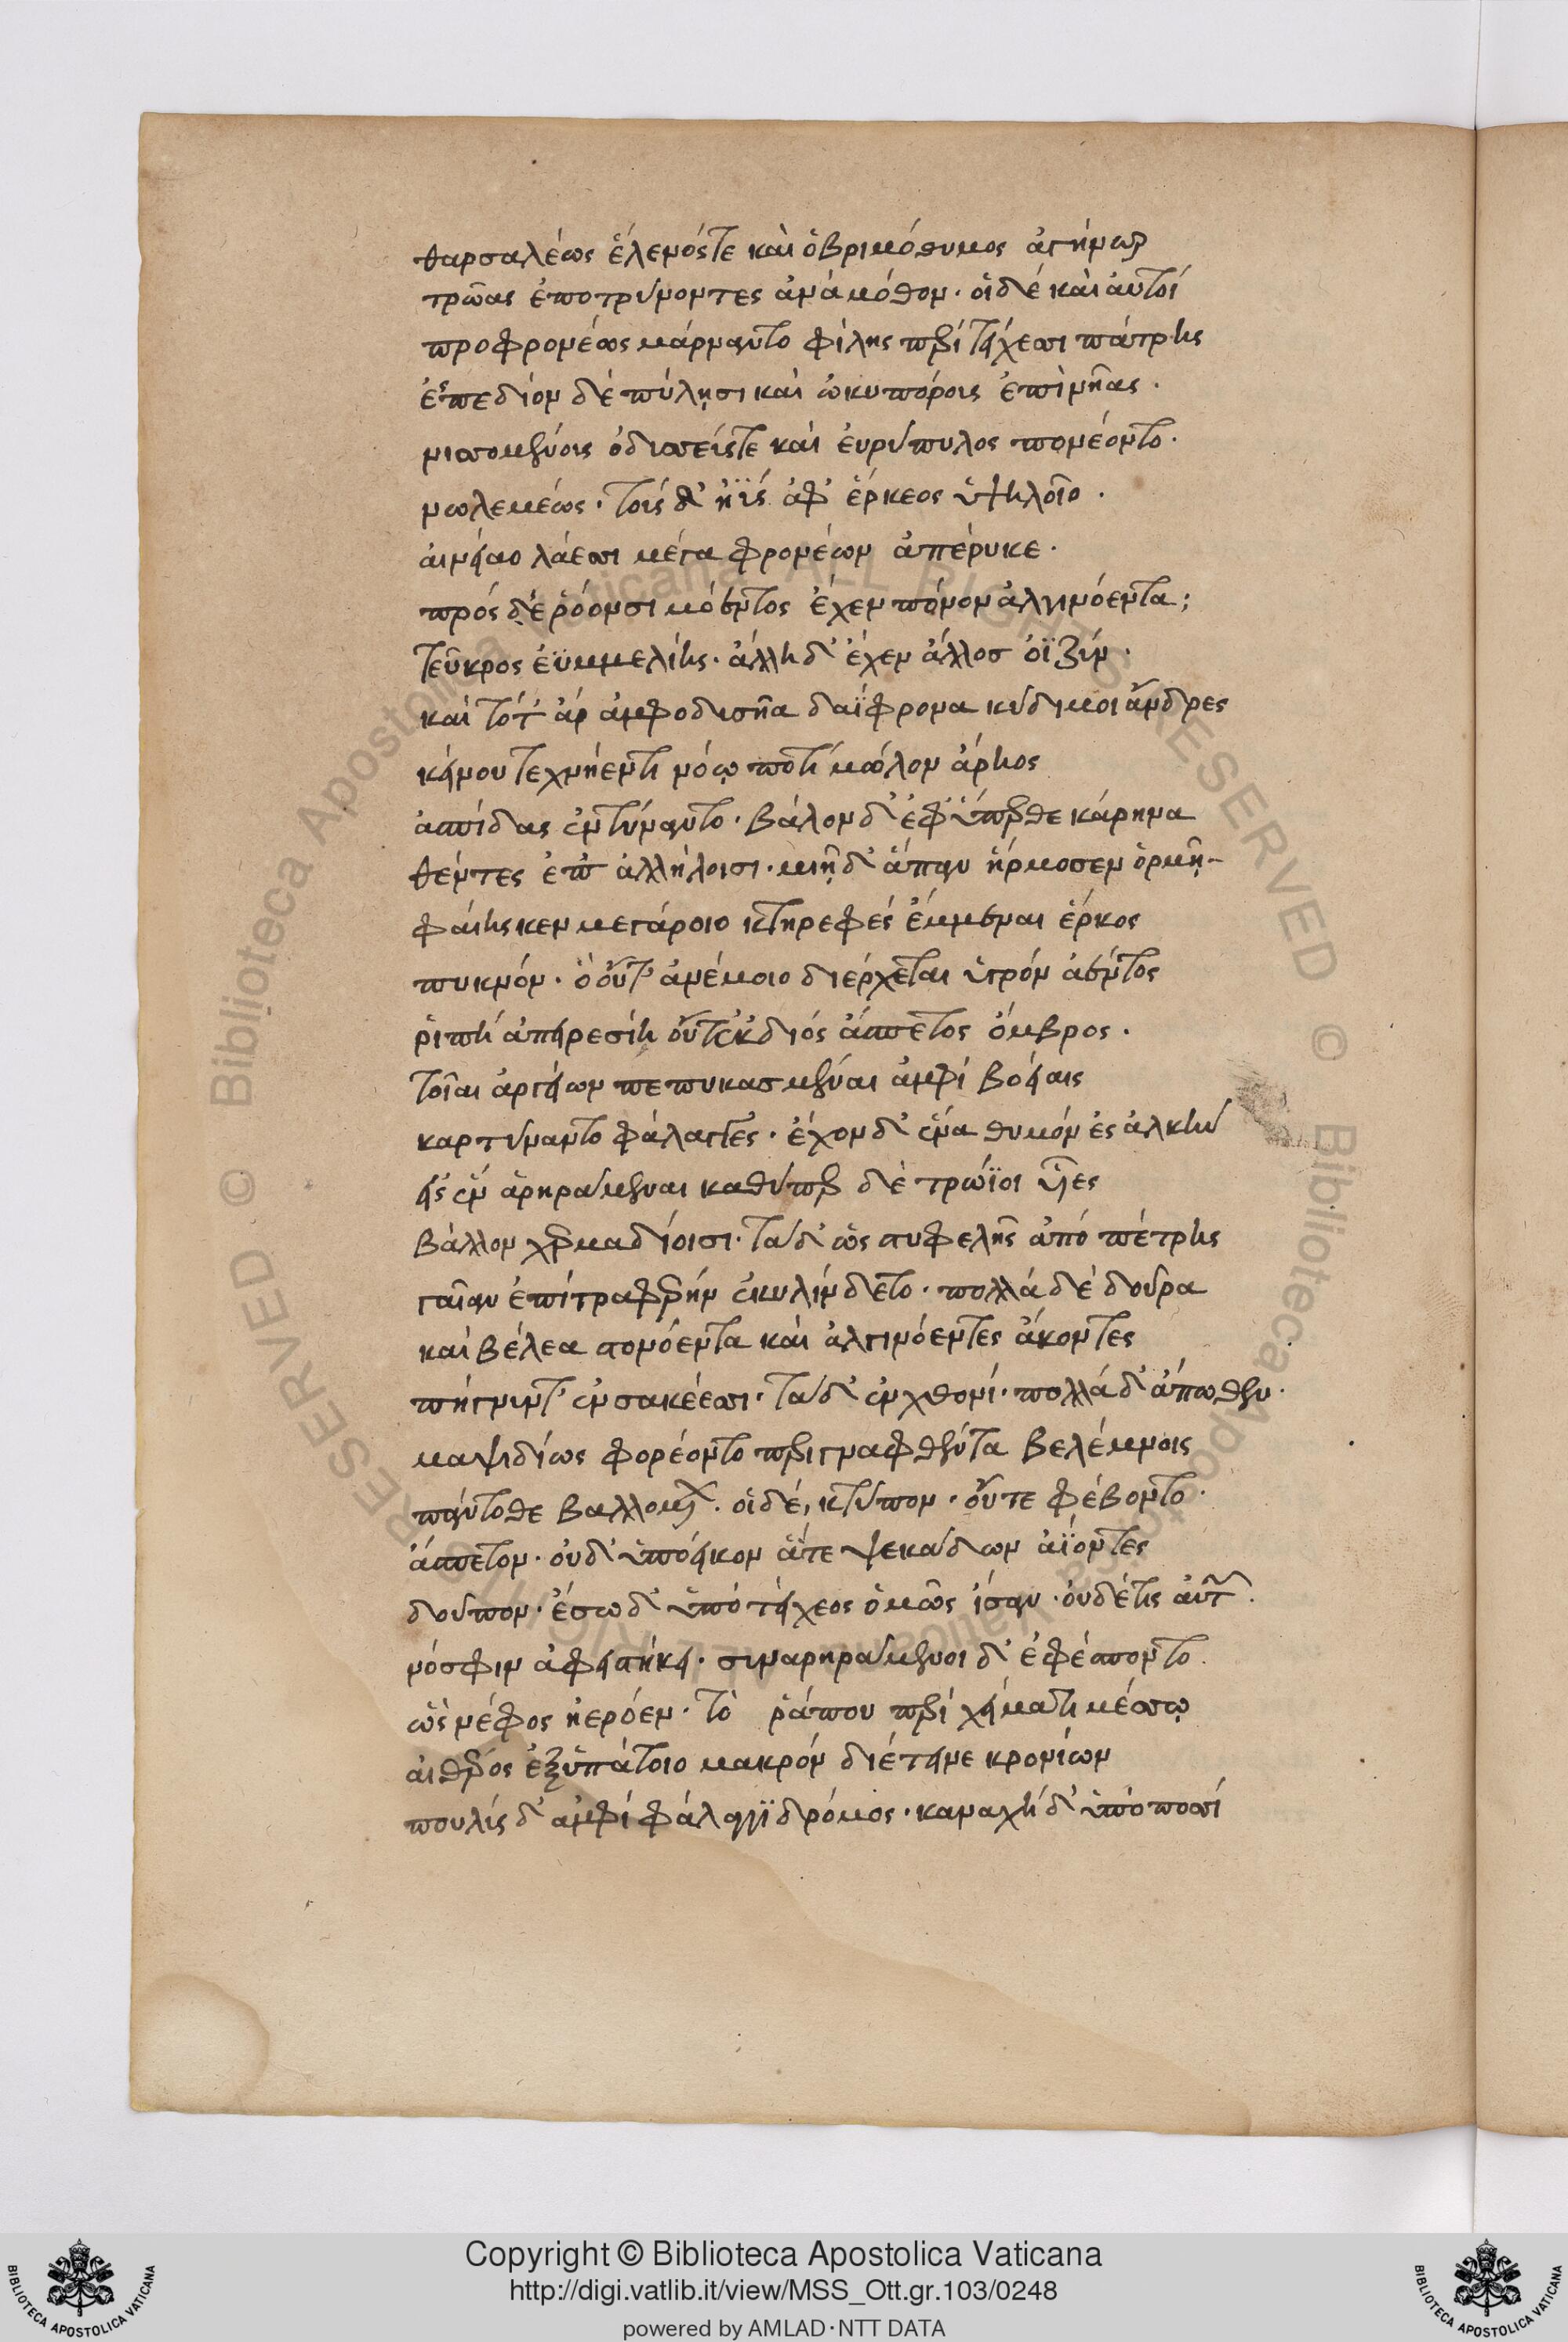 θαρσαλέως ἕλενόςτε καὶ ὀβριμόθυμος ἀγήνωρ
τρῶας ἐποτρύνοντες ἀνάμόθον. οἱδέ καὶ ἀυτοί
προφρονέως μάρναντο φίλης περί τείχεσι πάτρης
ἐςπεδίον δέπύλῃσι καὶ ὠκυπόροις ἐπὶνῆας.
μισγομένοις ὁδιαπείςτε καὶ ἐυρύπυλος πονέοντο.
νωλεμέως. τοῖς δ' ἠΰς ἀφ' ἕρκεος ὑψηλοῖο.
ἀινείαο λάεσσι μέγα φρονέων ἀπέρυκε.
πρός δέῥόονσι μόεντος ἔχεν πόνον ἀλγινόεντα;
τεῦκρος ἐϋμμελίης. ἄλλη δ' ἔχεν ἄλλοσ ὀϊζύν.
καὶ τότ' ἄρ ἀμφοδυσῆα δαΐφρονα κύδιμοι ἄνδρες
κείνου τεχνήεντι νόῳ ποτὶ μῶλον ἄρηος
ἀσπίδας ἐντύναντο. βάλον δ' ἐφύπερθε κάρηνα
θέντες ἐπ' ἀλλήλοισι. μιῇ δ' ἅπαν ἥρμοσεν ὁρμῇ-
φαίης κεν μεγάροιο κτηρεφές ἔμμεναι ἕρκος
πυκνόν. ὁ οὔτ' ἀνέμοιο διέρχεται ὑγρόν ἀέντος
ῥιπή ἀπειρεσίη οὔτ' ἐκ διός ἄσπετος ὄμβρος.
τοῖαι ἀργείων πεπυκασμέναι ἀμφὶ βοείαις
καρτύναντο φάλαγγες. ἔχον δ' ἕνα θυμόν ἐς ἀλκήν
εἰς ἕν ἀρηράμεναι καθύπερ δέ τρώϊοι υἷες
βάλλον χερμαδίοισι. τὰ δ' ὡς στυφελῆς ἀπό πέτρης
γαῖαν ἐπίτραφερήν ἐκυλίνδετο. πολλὰ δέ δοῦρα
καὶ βέλεα στονόεντα καὶ ἀλγινόεντες ἄκοντες
πήγνυντ' ἐν σακέεσσι. τὰ δ' ἐν χθονί. πολλά δ' ἄπωθεν.
μαψιδίως φορέοντο περιγναφθέντα βελέμνοις
πάντοθε βαλλομένων. οἱδέ, κτύπον. οὔτε φέβοντο.
ἄσπετον. οὐδ' ὑπόεικον ἅτε ψεκάδων ἀΐοντες
δοῦπον. ἔσω δ' ὑπό τείχεος ὁμῶς ἴσαν. οὐδέτις ἀυτῶν.
νόσφιν ἀφειστήκει. συναρηράμενοι δ' ἐφέσποντο.
ὡς νέφος ἠερόεν. τὸ ῥάπου περί χείματι μέσσῳ
αἰθέρος ἐξὑπάτοιο μακρόν διέτεινε κρονίων
πουλύς δ' ἀμφί φάλαγγι δρόμος. καναχή δ' ὑπό ποσσί
Copyright © Biblioteca Apostolica Vaticana
http://digi.vatlib.it/view/MSS_Ott.gr.103/0248
powered by AMLAD·NTT DATA